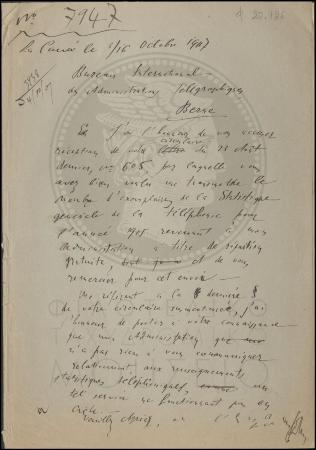 No 7947
La Canée le 3/16 Octobre 1907
Bureau International
des Administrations Télégraphiques
Berne
J'ai l'honneur de vous accuser
réception de votre circulaire du 21 Août
dernier, no 605 par laquelle vous
avez bien voulu me transmettre le
nombre d'exemplaires de la Statistique
générale de la téléphonie pour
l'année 1905 revenant à mon
Administration à titre de
gratuite, et de vous
remercier pour cet envoi
Me référant à la dernière §
de votre circulaire susmentionnée, j'ai
l'honneur de porter à votre connaissance
que mon Administration
n'a pas rien à vous communiquer
relativement aux renseignements
statistiques téléphoniques, un
tel service ne fonctionnant pas en
Crète.
Veuillez agréer,